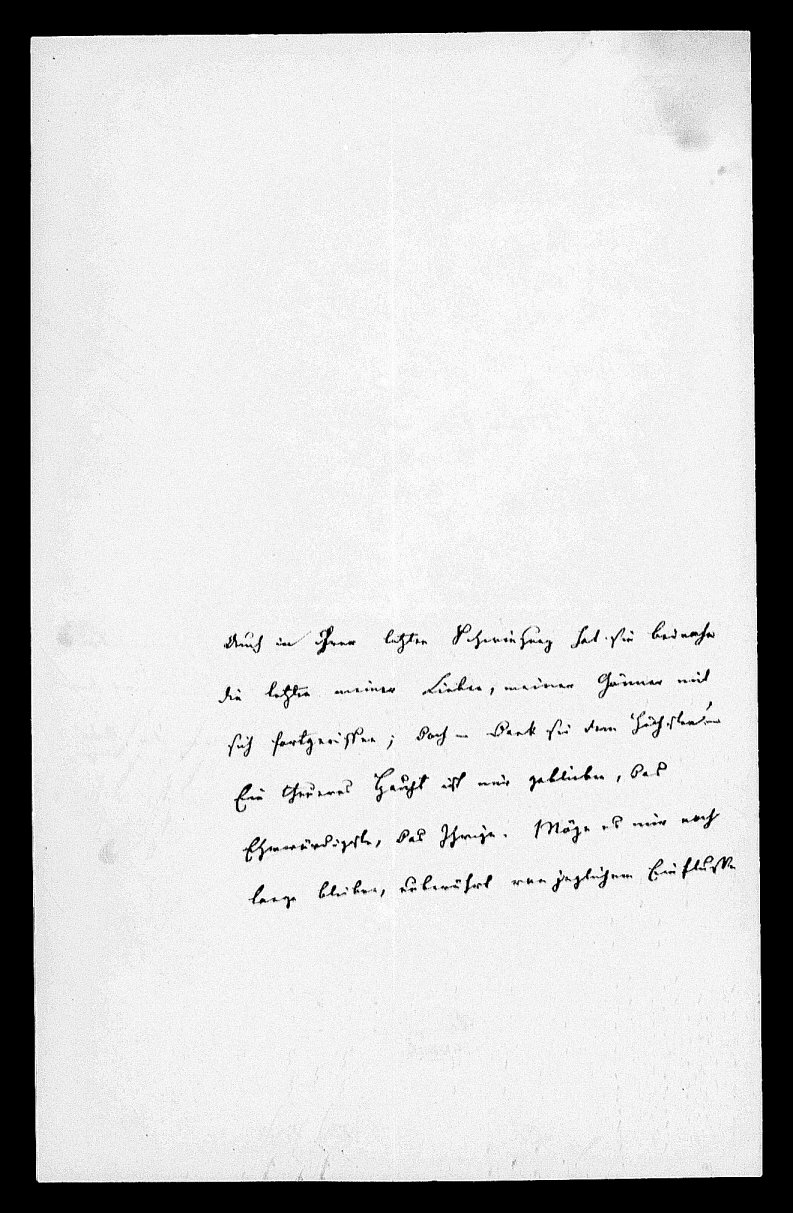 Auch in ihrer letzten Schwingung hat sie beinahe
die letzten meiner Lieben, meiner Gönner mit
sich fortgerissen; doch – Dank sei dem Höchsten! –
Ein theures Haupt ist mir geblieben, das
Ehrwürdigste, das Ihrige. Möge es mir noch
lange bleiben, unberührt von jeglichem Einflusse